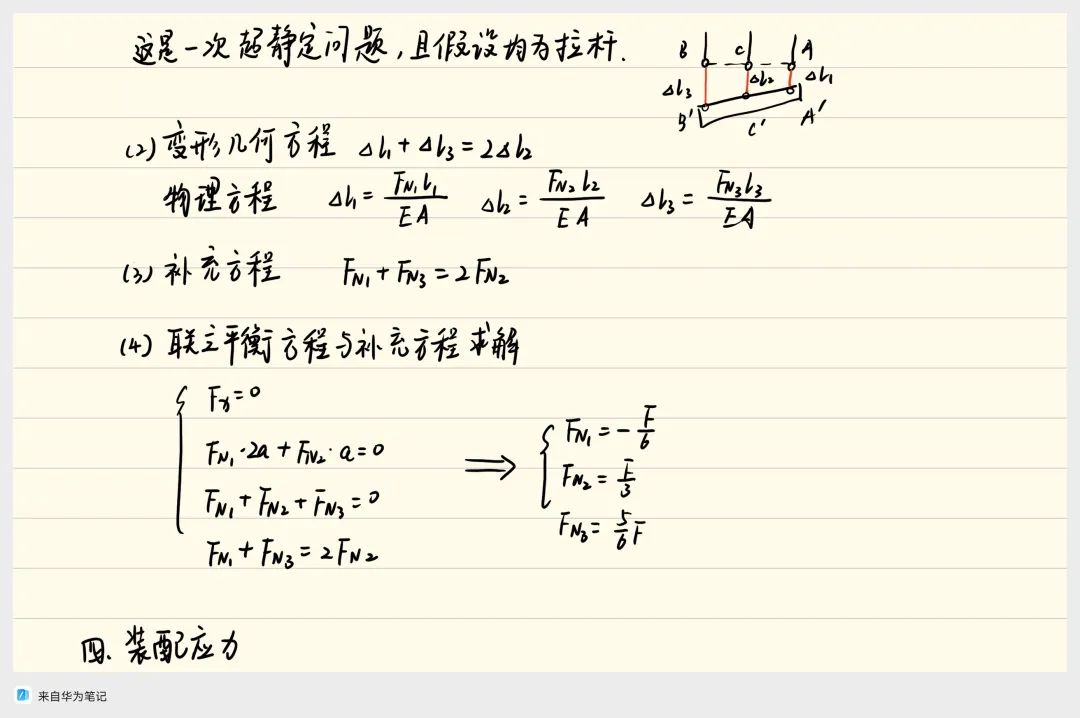 这是一次超静定问题,且假设均为拉杆.
B C A
Δl₃ Δl₂ Δl₁
B' C' A'
(2) 变形几何方程 Δl₁+Δl₃=2Δl₂
物理方程 Δl₁=F_N₁l₁/EA Δl₂=F_N₂l₂/EA Δl₃=F_N₃l₃/EA
(3) 补充方程 F_N₁+F_N₃=2F_N₂
(4) 联立平衡方程与补充方程求解
Fₓ=0
F_N₁·2a+F_N₂·a=0
F_N₁+F_N₂+F_N₃=0
F_N₁+F_N₃=2F_N₂
⟹
F_N₁=-F/6
F_N₂=F/3
F_N₃=5/6F
四. 装配应力
来自华为笔记